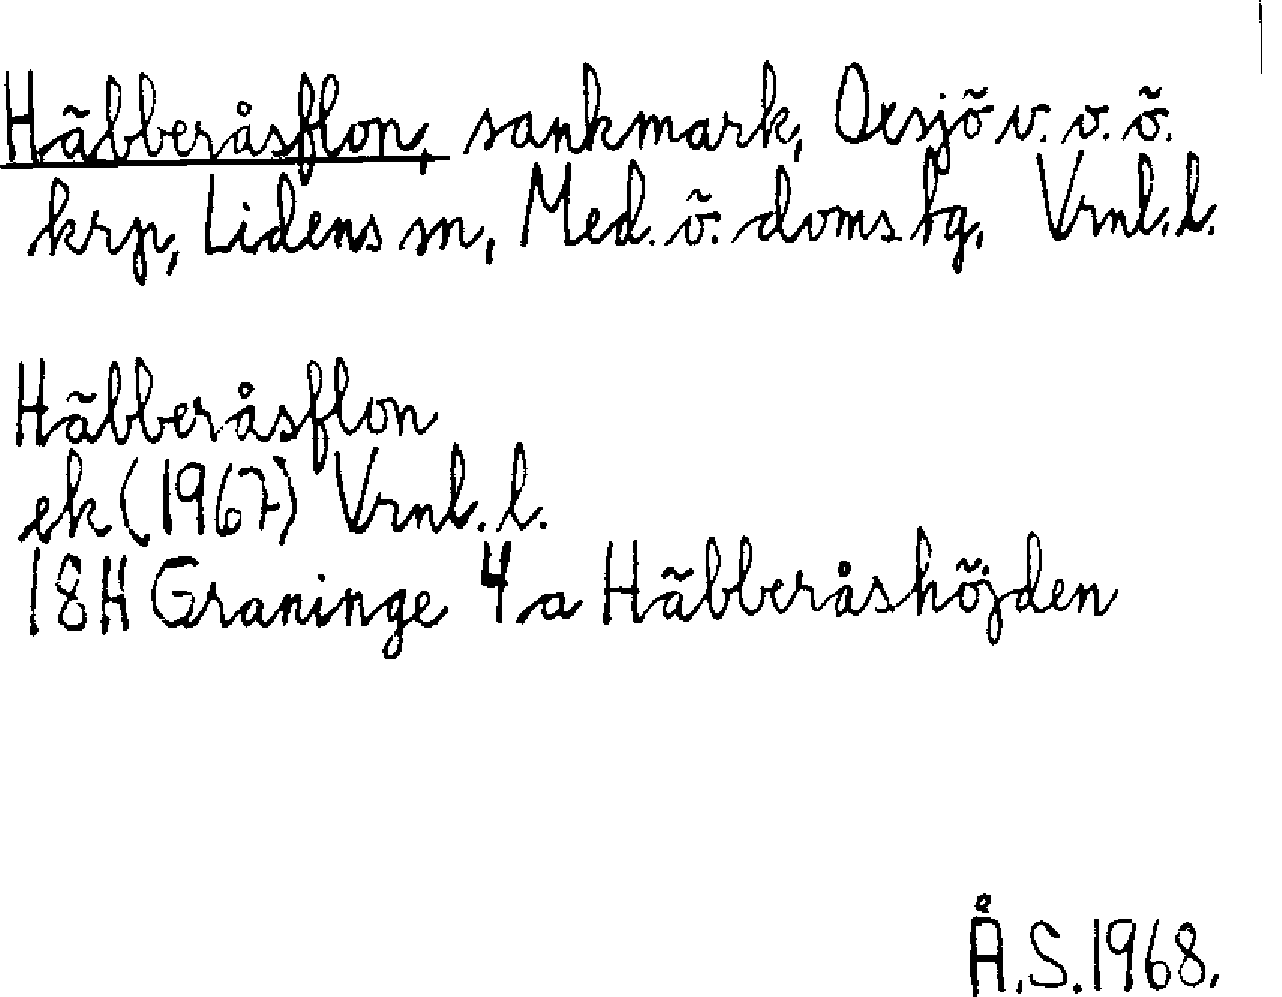 Häbberåsflon, sankmark, Oxsjö v. o. ö.
krp, Lidens sn, Med. ö. domstg, Vrnl. l.
Häbberåsflon
ek (1967) Vrnl. l.
18H Graninge 4a Häbberåshöjden
Å.S. 1968.